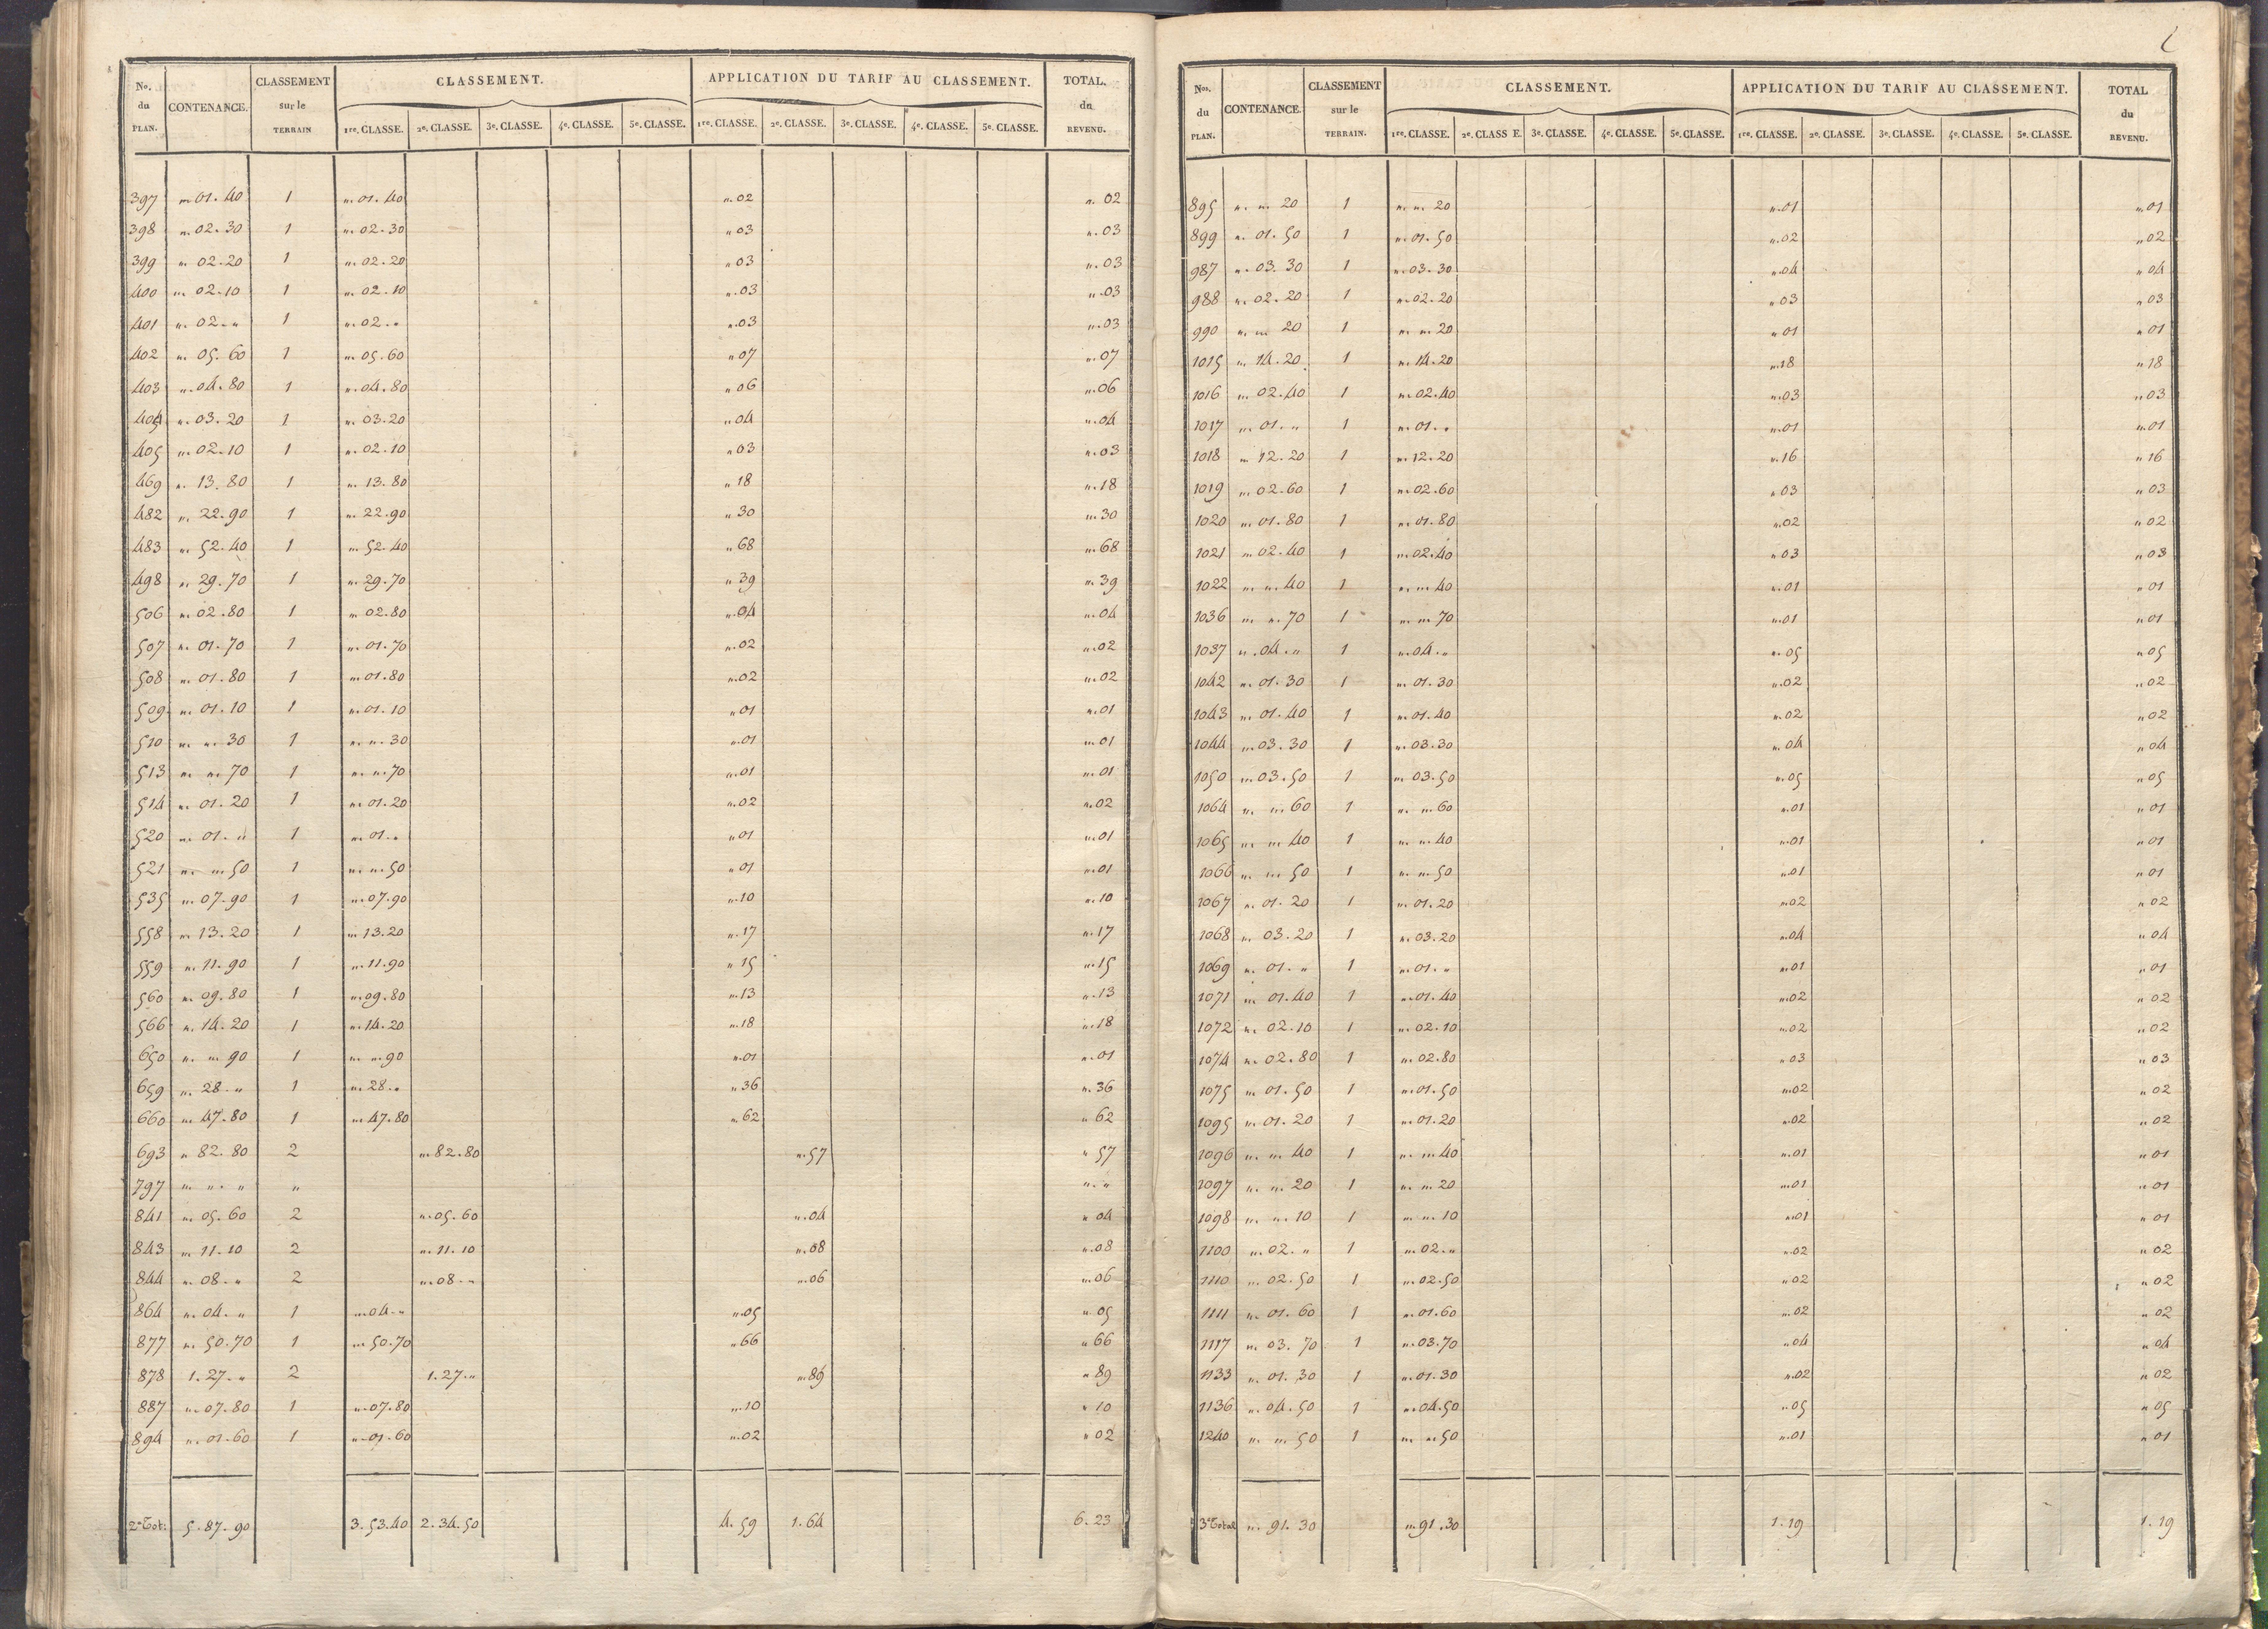 No. du PLAN. | CONTENANCE. | CLASSEMENT sur le TERRAIN | CLASSEMENT. | APPLICATION DU TARIF AU CLASSEMENT. | TOTAL. du REVENU.
1re. CLASSE. | 2e. CLASSE. | 3e. CLASSE. | 4e. CLASSE. | 5e. CLASSE. | 1re. CLASSE. | 2e. CLASSE. | 3e. CLASSE. | 4e. CLASSE. | 5e. CLASSE.
397 | ". 01. 40 | 1 | ". 01. 40 | ". 02 | ". 02
398 | ". 02. 30 | 1 | ". 02. 30 | " 03 | ". 03
399 | ". 02. 20 | 1 | ". 02. 20 | " 03 | ". 03
400 | ". 02. 10 | 1 | ". 02. 10 | ". 03 | ". 03
401 | ". 02. " | 1 | ". 02. " | ". 03 | ". 03
402 | ". 05. 60 | 1 | ". 05. 60 | " 07 | ". 07
403 | ". 04. 80 | 1 | ". 04. 80 | " 06 | ". 06
404 | ". 03. 20 | 1 | ". 03. 20 | " 04 | ". 04
405 | ". 02. 10 | 1 | ". 02. 10 | " 03 | ". 03
469 | ". 13. 80 | 1 | ". 13. 80 | " 18 | ". 18
482 | ". 22. 90 | 1 | ". 22. 90 | " 30 | ". 30
483 | ". 52. 40 | 1 | ". 52. 40 | " 68 | ". 68
498 | ". 29. 70 | 1 | ". 29. 70 | " 39 | ". 39
506 | ". 02. 80 | 1 | ". 02. 80 | ". 04 | ". 04
507 | ". 01. 70 | 1 | ". 01. 70 | ". 02 | ". 02
508 | ". 01. 80 | 1 | ". 01. 80 | ". 02 | ". 02
509 | ". 01. 10 | 1 | ". 01. 10 | " 01 | ". 01
510 | ". ". 30 | 1 | ". ". 30 | ". 01 | ". 01
513 | ". ". 70 | 1 | ". ". 70 | ". 01 | ". 01
514 | ". 01. 20 | 1 | ". 01. 20 | ". 02 | ". 02
520 | ". 01. " | 1 | ". 01. " | " 01 | ". 01
521 | ". ". 50 | 1 | ". ". 50 | " 01 | ". 01
535 | ". 07. 90 | 1 | ". 07. 90 | ". 10 | ". 10
558 | ". 13. 20 | 1 | ". 13. 20 | ". 17 | ". 17
559 | ". 11. 90 | 1 | ". 11. 90 | " 15 | ". 15
560 | ". 09. 80 | 1 | ". 09. 80 | ". 13 | ". 13
566 | ". 14. 20 | 1 | ". 14. 20 | ". 18 | ". 18
650 | ". ". 90 | 1 | ". ". 90 | ". 01 | ". 01
659 | ". 28. " | 1 | ". 28. " | " 36 | ". 36
660 | ". 47. 80 | 1 | ". 47. 80 | ". 62 | " 62
693 | " 82. 80 | 2 | ". 82. 80 | ". 57 | " 57
797 | ". ". " | " | ". "
841 | ". 05. 60 | 2 | ". 05. 60 | ". 04 | " 04
843 | ". 11. 10 | 2 | ". 11. 10 | ". 08 | ". 08
844 | ". 08. " | 2 | ". 08. " | ". 06 | ". 06
864 | ". 04. " | 1 | ". 04. " | ". 05 | " 05
877 | ". 50. 70 | 1 | ". 50. 70 | " 66 | " 66
878 | 1. 27. " | 2 | 1. 27. " | ". 89 | " 89
887 | ". 07. 80 | 1 | ". 07. 80 | ". 10 | " 10
894 | ". 01. 60 | 1 | ". 01. 60 | ". 02 | " 02
2e Tot: | 5. 87. 90 | 3. 53. 40 | 2. 34. 50 | 4. 59 | 1. 64 | 6. 23
Nos. du PLAN. | CONTENANCE. | CLASSEMENT sur le TERRAIN. | CLASSEMENT. | APPLICATION DU TARIF AU CLASSEMENT. | TOTAL du REVENU.
1re. CLASSE. | 2e. CLASS E. | 3e. CLASSE. | 4e. CLASSE. | 5e. CLASSE. | 1re. CLASSE. | 2e. CLASSE. | 3e. CLASSE. | 4e. CLASSE. | 5e. CLASSE.
895 | ". ". 20 | 1 | ". ". 20 | ". 01 | ". 01
899 | ". 01. 50 | 1 | ". 01. 50 | ". 02 | " 02
987 | ". 03. 30 | 1 | ". 03. 30 | ". 04 | " 04
988 | ". 02. 20 | 1 | ". 02. 20 | " 03 | " 03
990 | ". ". 20 | 1 | ". ". 20 | " 01 | " 01
1015 | ". 14. 20 | 1 | ". 14. 20 | ". 18 | " 18
1016 | ". 02. 40 | 1 | ". 02. 40 | ". 03 | " 03
1017 | ". 01. " | 1 | ". 01. " | ". 01 | ". 01
1018 | ". 12. 20 | 1 | ". 12. 20 | ". 16 | " 16
1019 | ". 02. 60 | 1 | ". 02. 60 | " 03 | " 03
1020 | ". 01. 80 | 1 | ". 01. 80 | ". 02 | " 02
1021 | ". 02. 40 | 1 | ". 02. 40 | " 03 | " 03
1022 | ". ". 40 | 1 | ". ". 40 | ". 01 | " 01
1036 | ". ". 70 | 1 | ". ". 70 | ". 01 | " 01
1037 | ". 04. " | 1 | ". 04. " | ". 05 | " 05
1042 | ". 01. 30 | 1 | ". 01. 30 | ". 02 | " 02
1043 | ". 01. 40 | 1 | ". 01. 40 | ". 02 | " 02
1044 | ". 03. 30 | 1 | ". 03. 30 | ". 04 | " 04
1050 | ". 03. 50 | 1 | ". 03. 50 | ". 05 | " 05
1064 | ". ". 60 | 1 | ". ". 60 | ". 01 | " 01
1065 | ". ". 40 | 1 | ". ". 40 | ". 01 | " 01
1066 | ". ". 50 | 1 | ". ". 50 | ". 01 | " 01
1067 | ". 01. 20 | 1 | ". 01. 20 | ". 02 | " 02
1068 | ". 03. 20 | 1 | ". 03. 20 | ". 04 | " 04
1069 | ". 01. " | 1 | ". 01. " | ". 01 | " 01
1071 | ". 01. 40 | 1 | ". 01. 40 | ". 02 | " 02
1072 | ". 02. 10 | 1 | ". 02. 10 | ". 02 | " 02
1074 | ". 02. 80 | 1 | ". 02. 80 | " 03 | " 03
1075 | ". 01. 50 | 1 | ". 01. 50 | ". 02 | " 02
1095 | ". 01. 20 | 1 | ". 01. 20 | ". 02 | " 02
1096 | ". ". 40 | 1 | ". ". 40 | ". 01 | " 01
1097 | ". ". 20 | 1 | ". ". 20 | ". 01 | " 01
1098 | ". ". 10 | 1 | ". ". 10 | ". 01 | " 01
1100 | ". 02. " | 1 | ". 02. " | ". 02 | " 02
1110 | ". 02. 50 | 1 | ". 02. 50 | " 02 | " 02
1111 | ". 01. 60 | 1 | ". 01. 60 | ". 02 | " 02
1117 | ". 03. 70 | 1 | ". 03. 70 | " 04 | " 04
1133 | ". 01. 30 | 1 | ". 01. 30 | ". 02 | " 02
1136 | ". 04. 50 | 1 | ". 04. 50 | " 05 | " 05
1240 | ". ". 50 | 1 | ". ". 50 | ". 01 | " 01
3e Total | ". 91. 30 | ". 91. 30 | 1. 19 | 1. 19